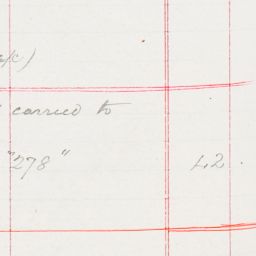 a/c)
carried to
"278" 42.